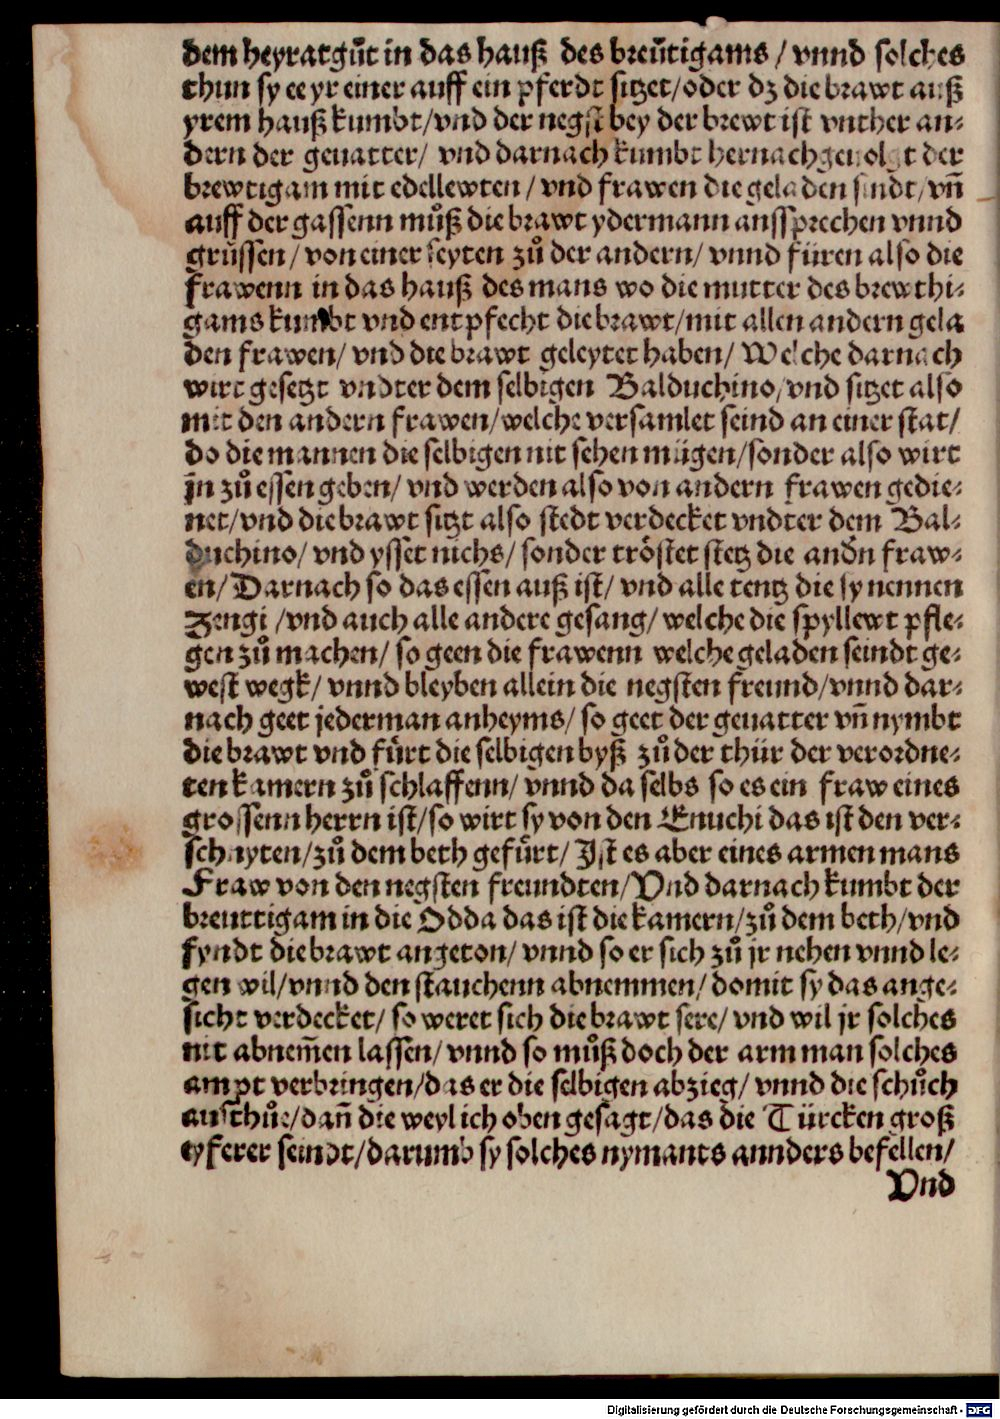 dem heyratgůt in das hauß des breůtigams / vnnd solches
thun sy ee yr einer auff ein pferdt sitzet/oder dz die brawt auß
yrem hauß kumbt/vnd der negst bey der brewt ist vnther an⸗
dern der geuatter/ vnd darnach kumbt hernachgeuolgt der
brewtigam mit edellewten / vnd frawen die geladen sindt/vn̄
auff der gassenn můß die brawt ydermann anssprechen vnnd
grůssen/ von einer seyten zů der andern/ vnnd füren also die
frawenn in das hauß des mans wo die mutter des brewthi⸗
gams kumbt vnd entpfecht die brawt/mit allen andern gela
den frawen/ vnd die brawt geleytet haben/ Welche darnach
wirt gesetzt vndter dem selbigen Balduchino/vnd sitzet also
mit den andern frawen/welche versamlet seind an einer stat/
do die mannen die selbigen nit sehen mügen/sonder also wirt
jn zů essen geben/ vnd werden also von andern frawen gedie⸗
net/vnd die brawt sitzt also stedt verdecket vndter dem Bal⸗
duchino/ vnd ysset nichs/ sonder tröstet stetz die andn fraw⸗
en/ Darnach so das essen auß ist/ vnd alle tentz die sy nennen
Zengi /vnd auch alle andere gesang/ welche die spyllewt pfle⸗
gen zů machen/ so geen die frawenn welche geladen seindt ge⸗
west wegk/ vnnd bleyben allein die negsten freund/vnnd dar⸗
nach geet jederman anheyms/ so geet der geuatter vn̄ nymbt
die brawt vnd fůrt die selbigen byß zů der thür der verordne⸗
ten kamern zů schlaffenn/ vnnd da selbs so es ein fraw eines
grossenn herrn ist/so wirt sy von den Enuchi das ist den ver⸗
schnyten/zů dem beth gefůrt/ Jst es aber eines armen mans
Fraw von den negsten freundten/Vnd darnach kumbt der
breuttigam in die Odda das ist die kamern/zů dem beth/vnd
fyndt die brawt angeton/ vnnd so er sich zů jr nehen vnnd le⸗
gen wil/vnnd den stauchenn abnemmen/ domit sy das ange⸗
sicht verdecket/ so weret sich die brawt sere/ vnd wil jr solches
nit abnem̄en lassen/ vnnd so můß doch der arm man solches
ampt verbringen/das er die selbigen abzieg/ vnnd die schůch
austhůe/dan̄ die weyl ich oben gesagt/das die Türcken groß
eyferer seindt/darumb sy solches nymants annders befellen/
Vnd
Digitalisierung gefördert durch die Deutsche Forschungsgemeinschaft - DFG